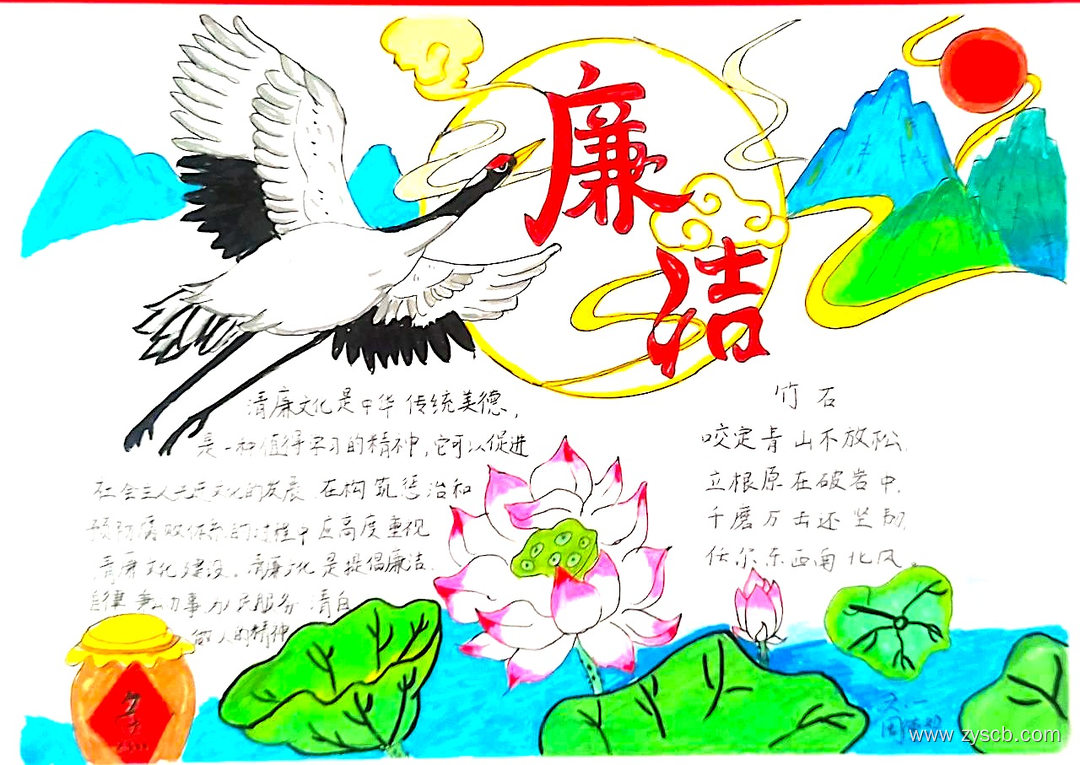 廉
洁
清廉文化是中华传统美德，
是一种值得学习的精神，它可以促进
社会主人民文化的发展 在构筑惩治和
预防腐败体系的过程中应高度重视
清廉文化建设。清廉文化是提倡廉洁
自律 秉公办事 为民服务 清白
做人的精神
竹石
咬定青山不放松，
立根原在破岩中，
千磨万击还坚韧，
任尔东西南北风。
www.zyscb.com